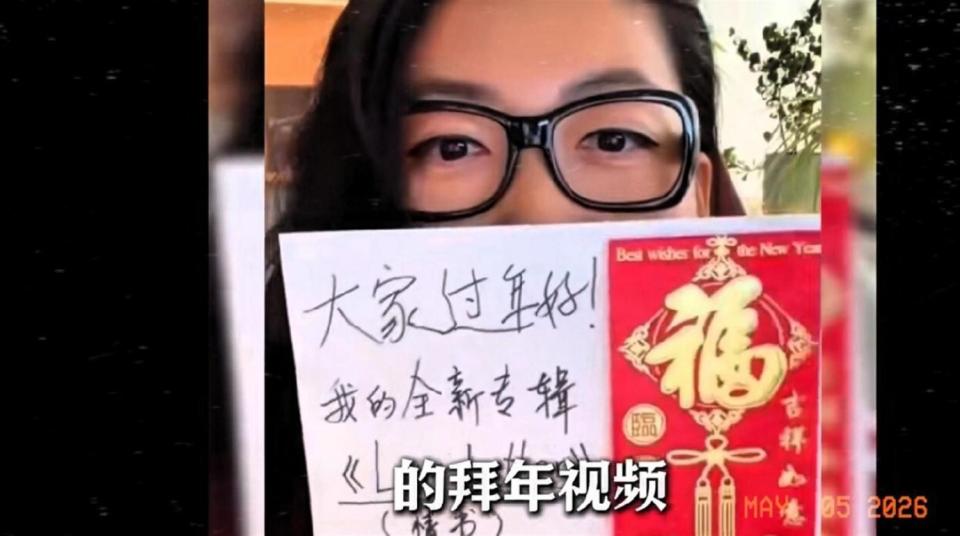 大家过年好!
我的全新专辑
(情书)
Best wishes for the New Year
福
臨
吉祥如意
的拜年视频
MAY 05 2026